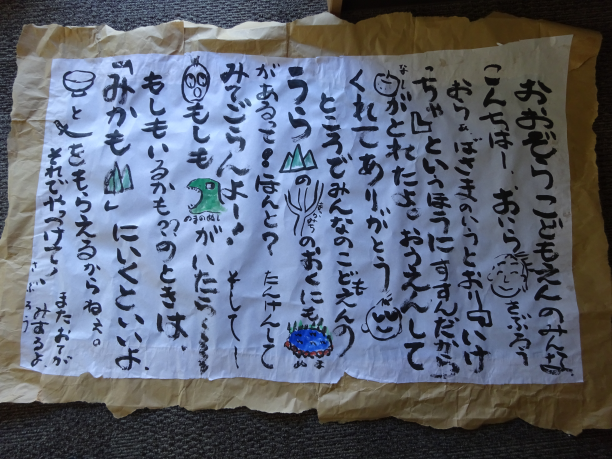 おおぞらこどもえんのみんな
こんちはー、おいら さぶろう
おらぁばさまのいうとおり『いけ
っちゃ』というほうにすすんだから
なし がとれたよ。おうえんして
くれてありがとう
ところでみんなのこどもえんの
うら の のおくにも ぬま
があるって!ほんと?たんけんして
みてごらんよー! そしてー
もしも ぬまのぬし がいたら……
もしもいるかも??のときは、
「みかも山」にいくといいよ。
と をもらえるからねぇ。
それでやっつけて! またおてがみするよ
さぶろう